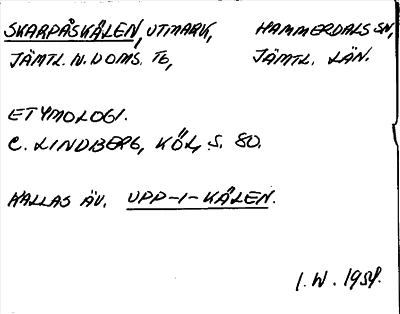 SKARPÅSKÄLEN, UTMARK, HAMMERDALS SN,
JÄMTL. N. DOMS. TG, JÄMTL. LÄN.
ETYMOLOGI.
C. LINDBERG, KÖL, S. 80.
KALLAS ÄV. UPP-I-KÄLEN.
I. W. 1954.